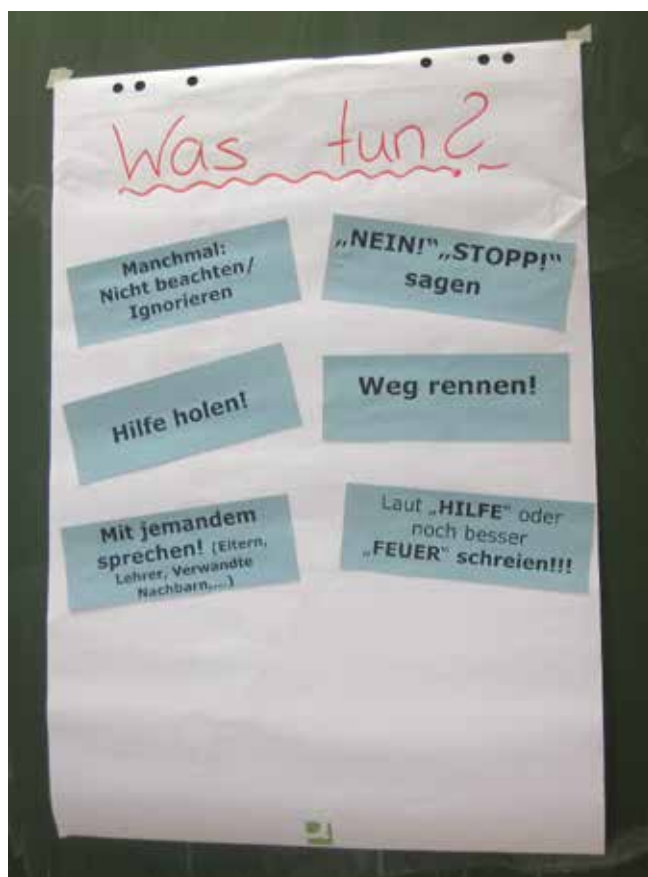 Was tun?
Manchmal:
Nicht beachten/
Ignorieren
„NEIN!"„STOPP!"
sagen
Hilfe holen!
Weg rennen!
Mit jemandem
sprechen! (Eltern,
Lehrer, Verwandte
Nachbarn,...)
Laut „HILFE" oder
noch besser
„FEUER" schreien!!!